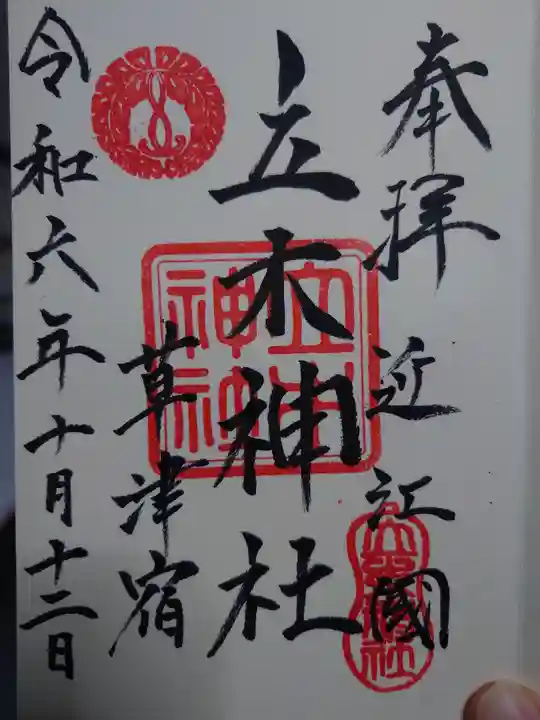 奉拝
近江國
立木神社
草津宿
令和六年十月十二日
立木
神社